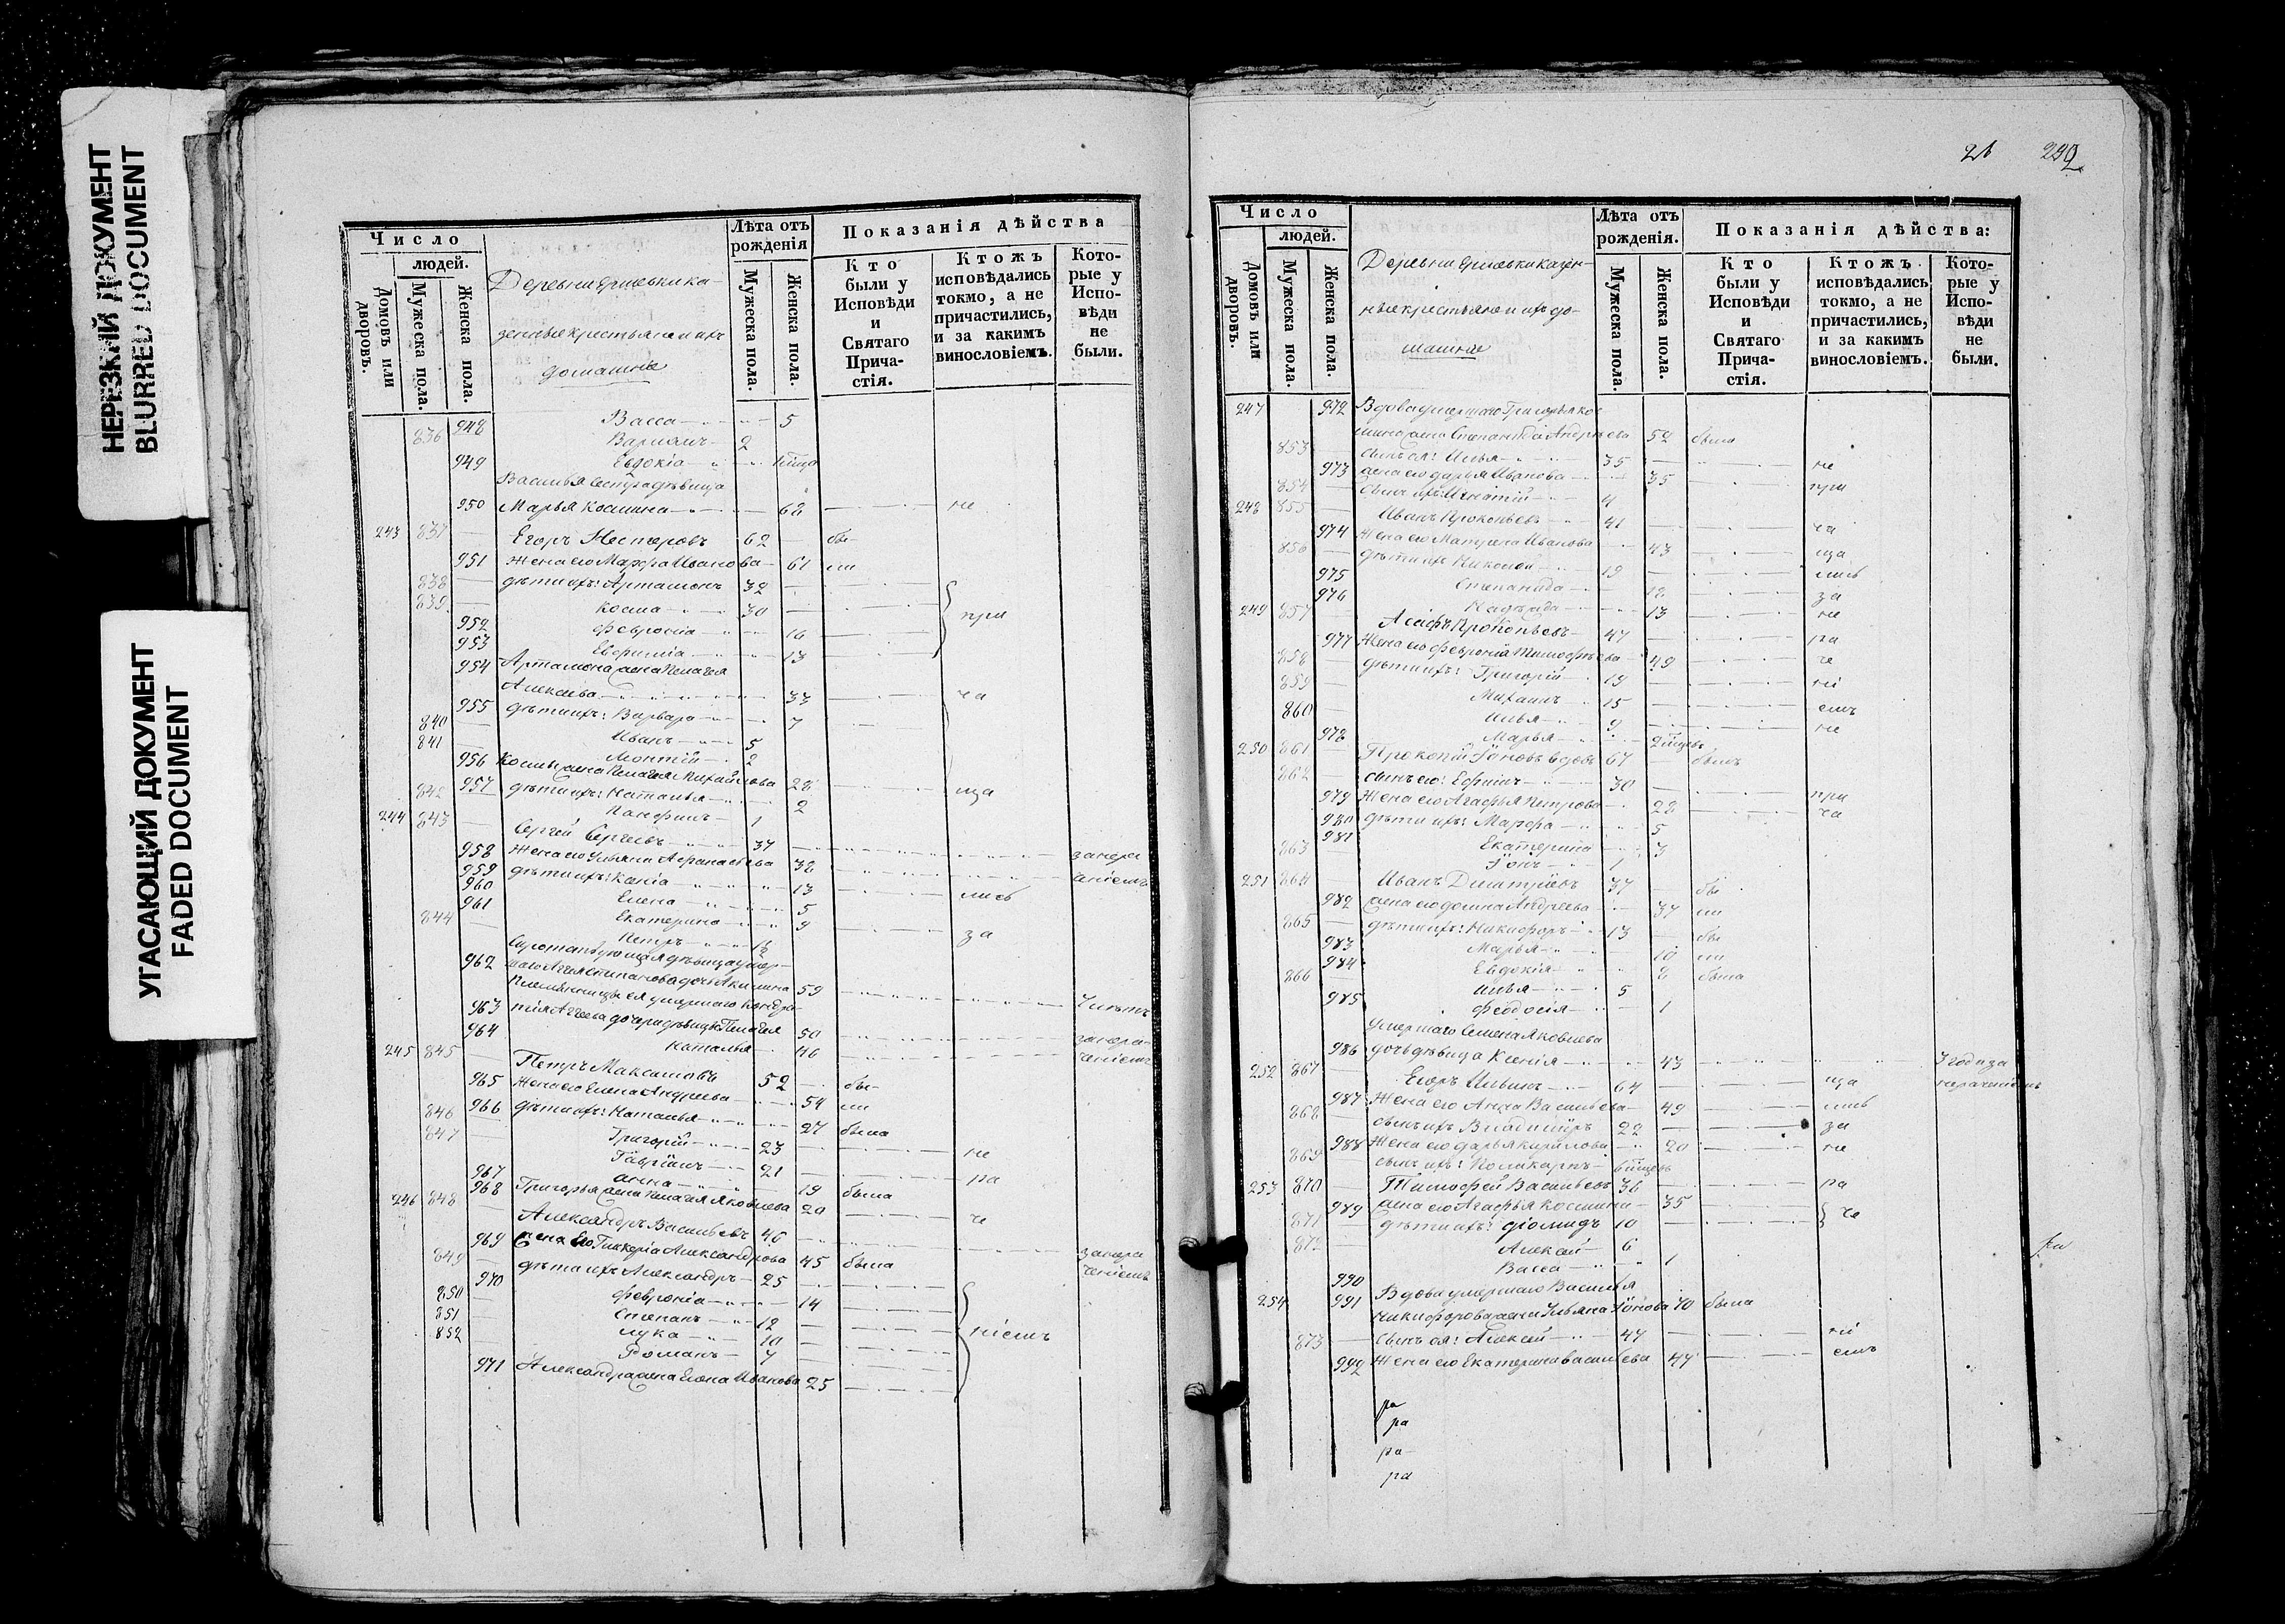 НЕРЕЗКИЙ ДОКУМЕНТ
BLURRED DOCUMENT
УГАСАЮЩИЙ ДОКУМЕНТ
FADED DOCUMENT
Число
людей.
Домовъ или дворовъ.
Мужеска пола.
Женска пола.
Деревни Ершевки ка-
зенные крестьяне и ихъ
домашніе
Лѣта отъ рожденія
Мужеска пола.
Женска пола.
Показанія дѣйства
Кто были у Исповѣди и Святаго Причастія.
Ктожъ исповѣдались токмо, а не причастились, и за какимъ винословіемъ.
Которые у Исповѣди не были.
948 Васса 5
836 Варлаамъ 2
949 Евдокіа
Василья сестра дѣвица
950 Марья Космина 62 не
243 837 Егоръ Нестеровъ 62 бы-
951 Жена его Марфа Иванова 61 ли
838 дѣти ихъ: Артамонъ 32
839 Косма 30 при
952 Февроніа 16
953 Евфиміа 13
954 Артамона жена Пелагея
Алексѣева 33 ча
955 дѣти ихъ: Варвара 7
840 Иванъ 5
841 Монтій 2
956 Космы жена Пелагея Михайлова 28 ща
957 дѣти ихъ: Наталья 2
842 Панфилъ 1
244 843 Сергей Сергеевъ 37
958 Жена его Ульяна Афанасьева 38 занера
959 дѣти ихъ: Ксеніа 13 лись ченіемъ
960 Елена 5
961 Екатерина 9 за
844 Петръ
962 Степанова дочь Акилина 59
963 дочери дѣвицы Пелагея 50
964 Наталья 46 занера-
ченіемъ
245 845 Петръ Максимовъ 52 бы-
965 Жена его Елена Андреева 54 ли
966 дѣти ихъ: Наталья 27 была
846 Григорій 23 не
847 Гавріилъ 21
967 Анна 19 была ра
968 Григорья жена Пелагея Яковлева 20 че
246 848 Александръ Васильевъ 46
969 Жена Его Гликеріа Александрова 45 была занера
849 дѣти ихъ Александръ 25 ченіемъ
970 Февроніа 14
850 Степанъ 12
851 Лука 10 ніемъ
852 Романъ 7
971 Александра жена Елена Иванова 25
26 292
Число
людей.
Домовъ или дворовъ.
Мужеска пола.
Женска пола.
Деревни Ершевки казен-
ные крестьяне и ихъ до-
машніе
Лѣта отъ рожденія.
Мужеска пола.
Женска пола.
Показанія дѣйства:
Кто были у Исповѣди и Святаго Причастія.
Ктожъ исповѣдались токмо, а не причастились, и за какимъ винословіемъ.
Которые у Исповѣди не были.
247 972 Вдова умершаго Григорья Кос
мина жена Степанида Андреева 52 была
853 сынъ ея: Илья 35 не
973 жена его Дарья Иванова 35 при
854 Сынъ ихъ: Игнатій 4
248 855 Иванъ Прокопьевъ 41 ча
974 Жена его Матрена Иванова 43 ща
856 дѣти ихъ Николай 19 лись
975 Степанида 18 за
976 Надежда 13 не
249 857 Асафъ Прокопьевъ 47 ра
977 Жена его Февронія Тимофѣева 49 че
858 дѣти ихъ: Григорій 19 ні
859 Михаилъ 15 емъ
860 Илья 9 не
978 Марья
250 861 Прокопій Іоновъ вдовъ 67 былъ
862 сынъ его: Ефимъ 30 при
979 Жена его Агафья Петрова 28 ча
980 дѣти ихъ: Марфа 5
981 Екатерина 3
863 Іонъ 1
251 864 Иванъ Дмитріевъ 37 бы
982 жена его Домна Андреева 37 ли
865 дѣти ихъ: Никифоръ 13 бы
983 Марья 10 ли
984 Евдокія 8 была
866 Илья 5
985 Феодосія 1
Умершаго Семена Яковлева
986 дочь дѣвица Ксенія 43 3 года за
252 867 Егоръ Ильинъ 64 ща нераченіемъ
987 Жена его Анна Васильева 49 лись
868 сынъ ихъ Владиміръ 22 за
988 Жена его Дарья Кирилова 20 не
869 сынъ ихъ: Поликарпъ
253 870 Тимофей Васильевъ 36 ра
989 жена его Агафья Космина 35 че
871 дѣти ихъ: Діомидъ 10
872 Алексѣй 6
990 Васса 1
254 991 Вдова умершаго Василья
Никифорова жена Ульяна Іонова 70 была
873 Сынъ ея: Алексѣй 47 ні
992 Жена его Екатерина Васильева 47 емъ
ра
ра
ра
ра